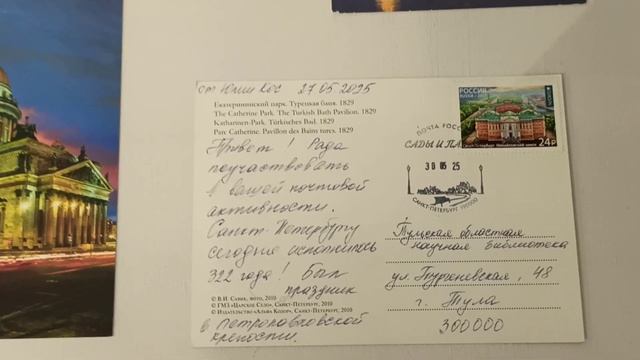 от Юлии Кос 27.05.2025
Екатерининский парк. Турецкая баня. 1829
The Catherine Park. The Turkish Bath Pavilion. 1829
Katharinen-Park. Türkisches Bad. 1829
Parc Catherine. Pavillon des Bains turcs. 1829
Привет! Рада
поучаствовать
в вашей почтовой
активности.
Санкт-Петербургу
сегодня исполнилось
322 года! Был
праздник
в Петропавловской
крепости.
© В.И. Савик, фото, 2010
© ГМЗ «Царское Село», Санкт-Петербург, 2010
© Издательство «Альфа Колор», Санкт-Петербург, 2010
РОССИЯ
24₽
ПОЧТА РОССИИ
САДЫ И ПА
30 05 25
САНКТ-ПЕТЕРБУРГ 190000
Тульская областная
научная библиотека
ул. Тургеневская, 48
г. Тула
300000